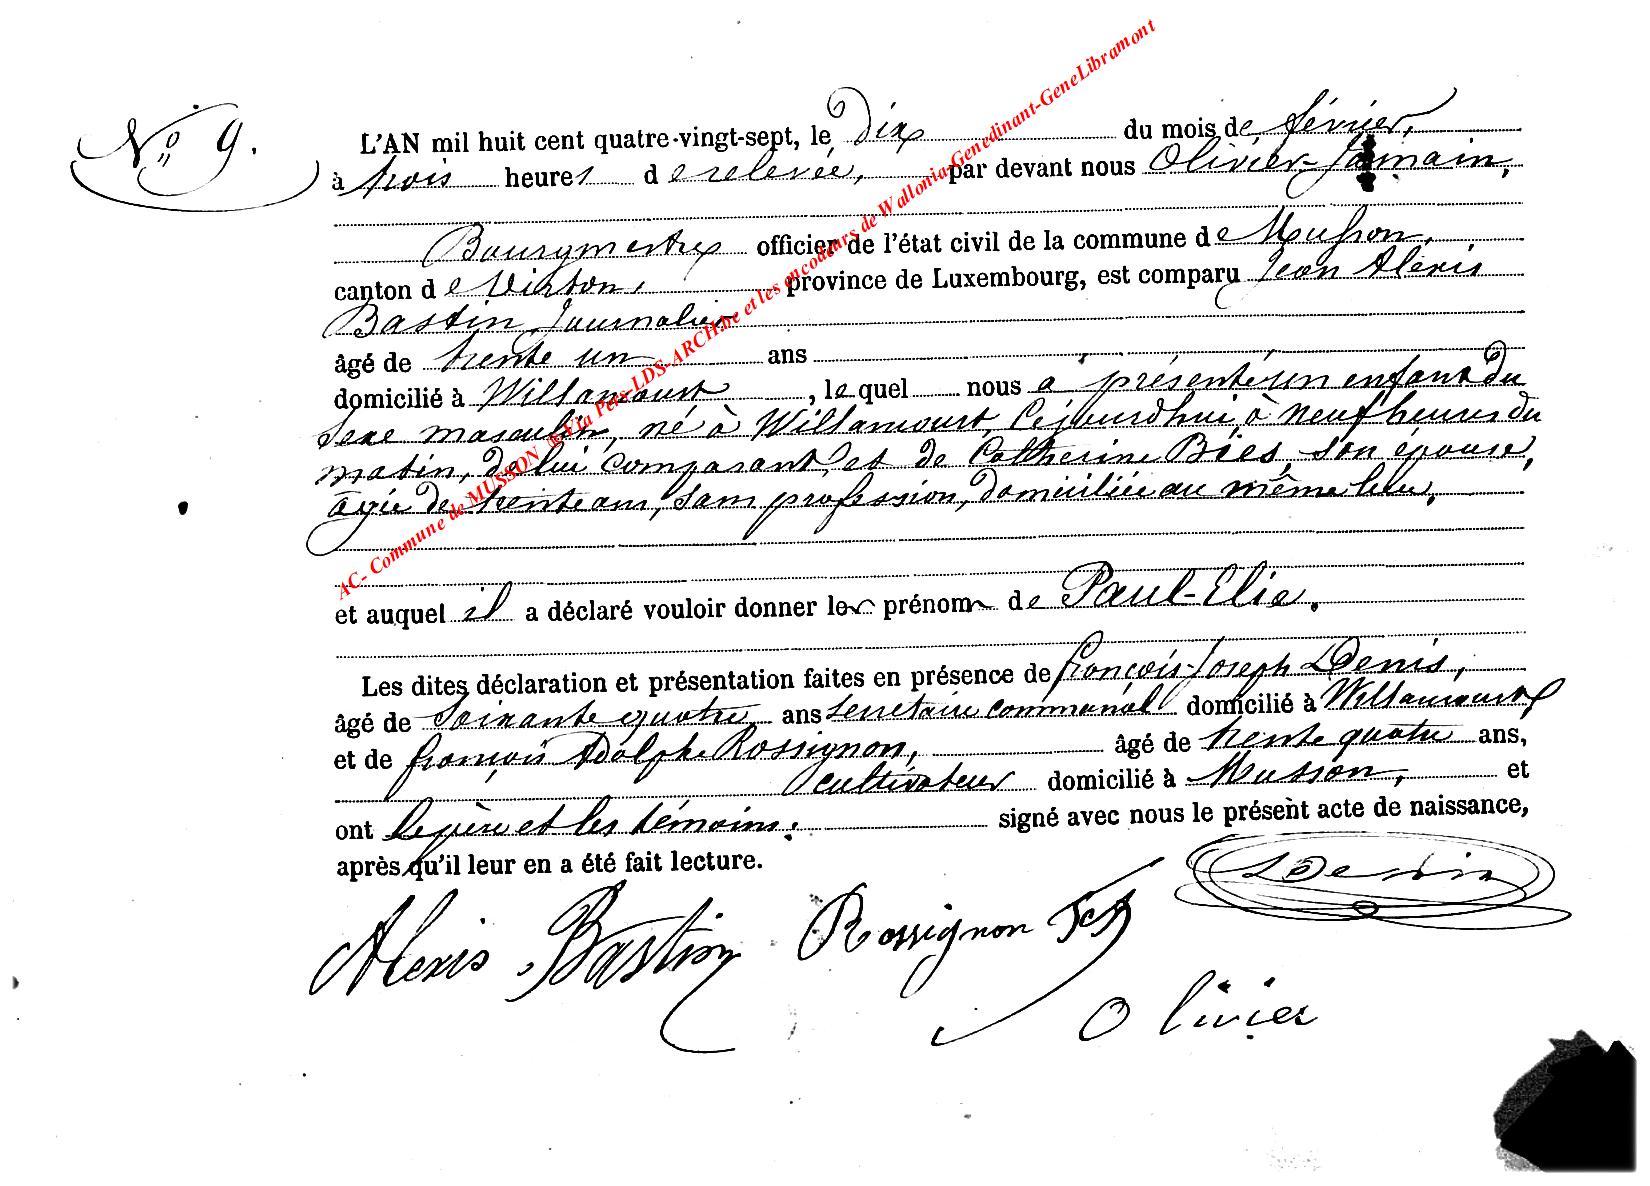 N° 9.
L'AN mil huit cent quatre-vingt-sept, le dix du mois de février,
à trois heures de relevée, par devant nous Olivier-Jamain,
Bourgmestre officier de l'état civil de la commune de Musson,
canton de Virton, province de Luxembourg, est comparu Jean Alexis
Bastin, Journalier
âgé de trente un ans
domicilié à Willancourt, lequel nous a présenté un enfant du
sexe masculin, né à Willancourt, cejourd'hui, à neuf heures du
matin, de lui comparant, et de Catherine Boës, son épouse,
agée de trente ans, sans profession, domiciliée au même lieu.
et auquel il a déclaré vouloir donner les prénoms de Paul-Elie.
Les dites déclaration et présentation faites en présence de françois-Joseph Denis,
âgé de Soixante quatre ans secrétaire communal domicilié à Willancourt,
et de françois Adolphe Rossignon, âgé de trente quatre ans,
cultivateur domicilié à Musson, et
ont le père et les témoins signé avec nous le présent acte de naissance,
après qu'il leur en a été fait lecture.
Denis
Alexis Bastin Rossignon
Olivier
AC- Commune de MUSSON ®Via Pers-LDS-ARCH.be et les encodeurs de Wallonia-Genedinant-GeneLibramont